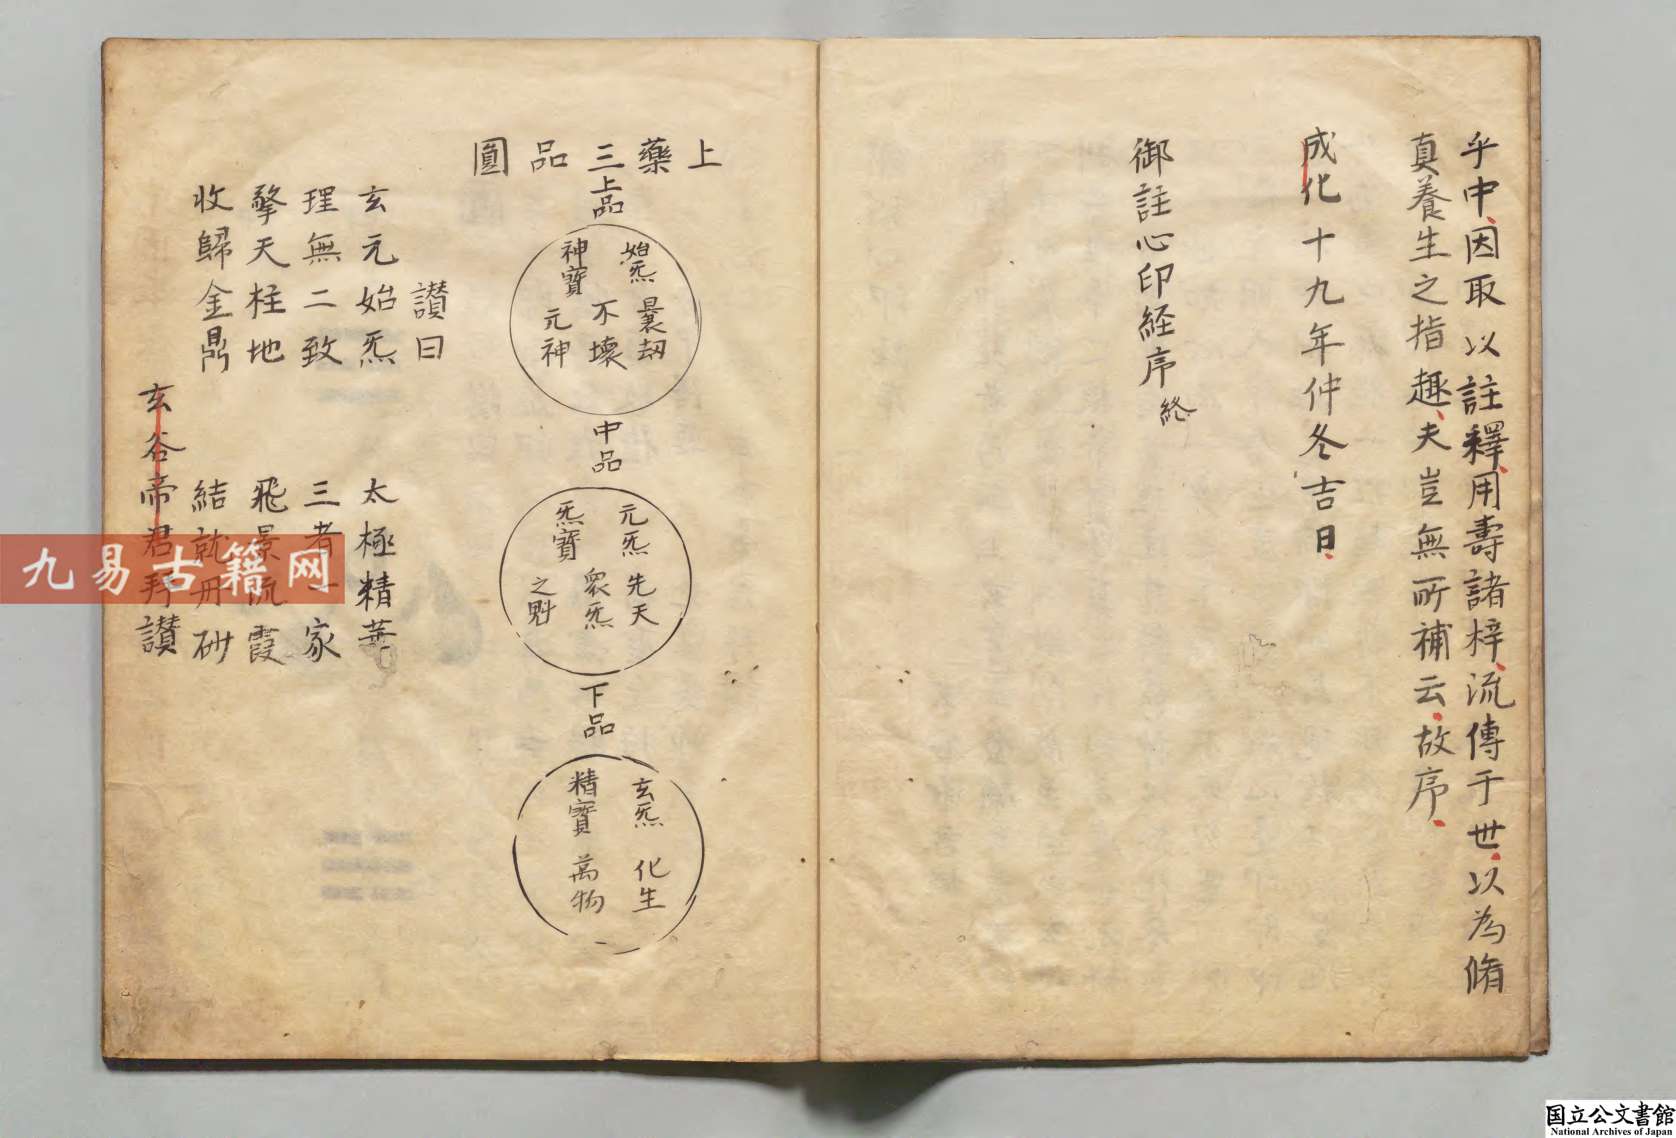 乎中因取以註釋用壽諸梓流傳于世以為脩
真養生之指趣夫豈無所補云故序
成化十九年仲冬吉日
御註心印経序終
上藥三品圓
上品
始炁曩劫
不壞
神寶元神
中品
元炁先天
衆炁
炁寶之
下品
玄炁化生
精寶萬物
讃曰
玄元始炁太極精華
理無二致三者一家
擎天柱地飛景流霞
收歸金鼎結就丹砂
玄谷帝君拜讃
九易古籍网
国立公文書館
National Archives of Japan